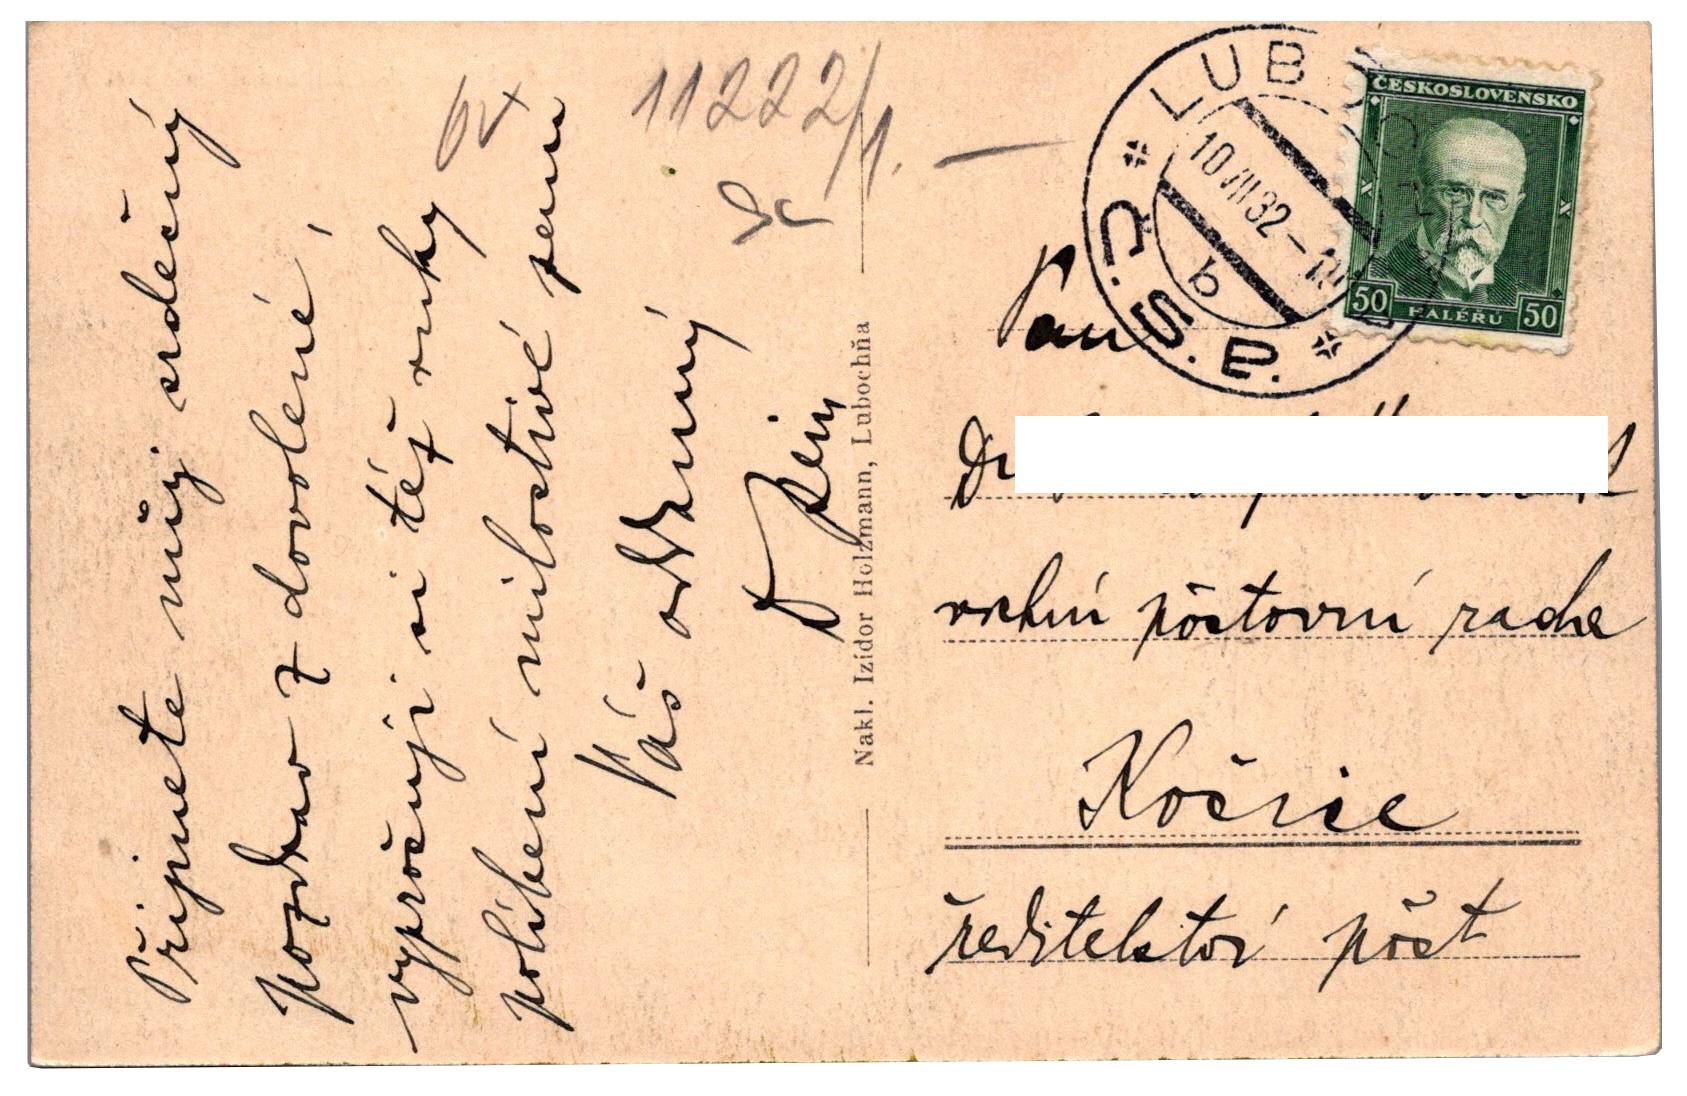 Přijmete můj srdečný
pozdrav z dovolené,
vyprošuji si též ruky
políbení milostivé paní
Váš oddaný
11222/1. —
Nakl. Izidor Holzmann, Lubochňa
LUBOCHŇA
10/VII 32
b
Č.S.P.
ČESKOSLOVENSKO
50 HALÉŘŮ 50
Pan
Dr
vrchní poštovní rada
Košice
ředitelství pošt